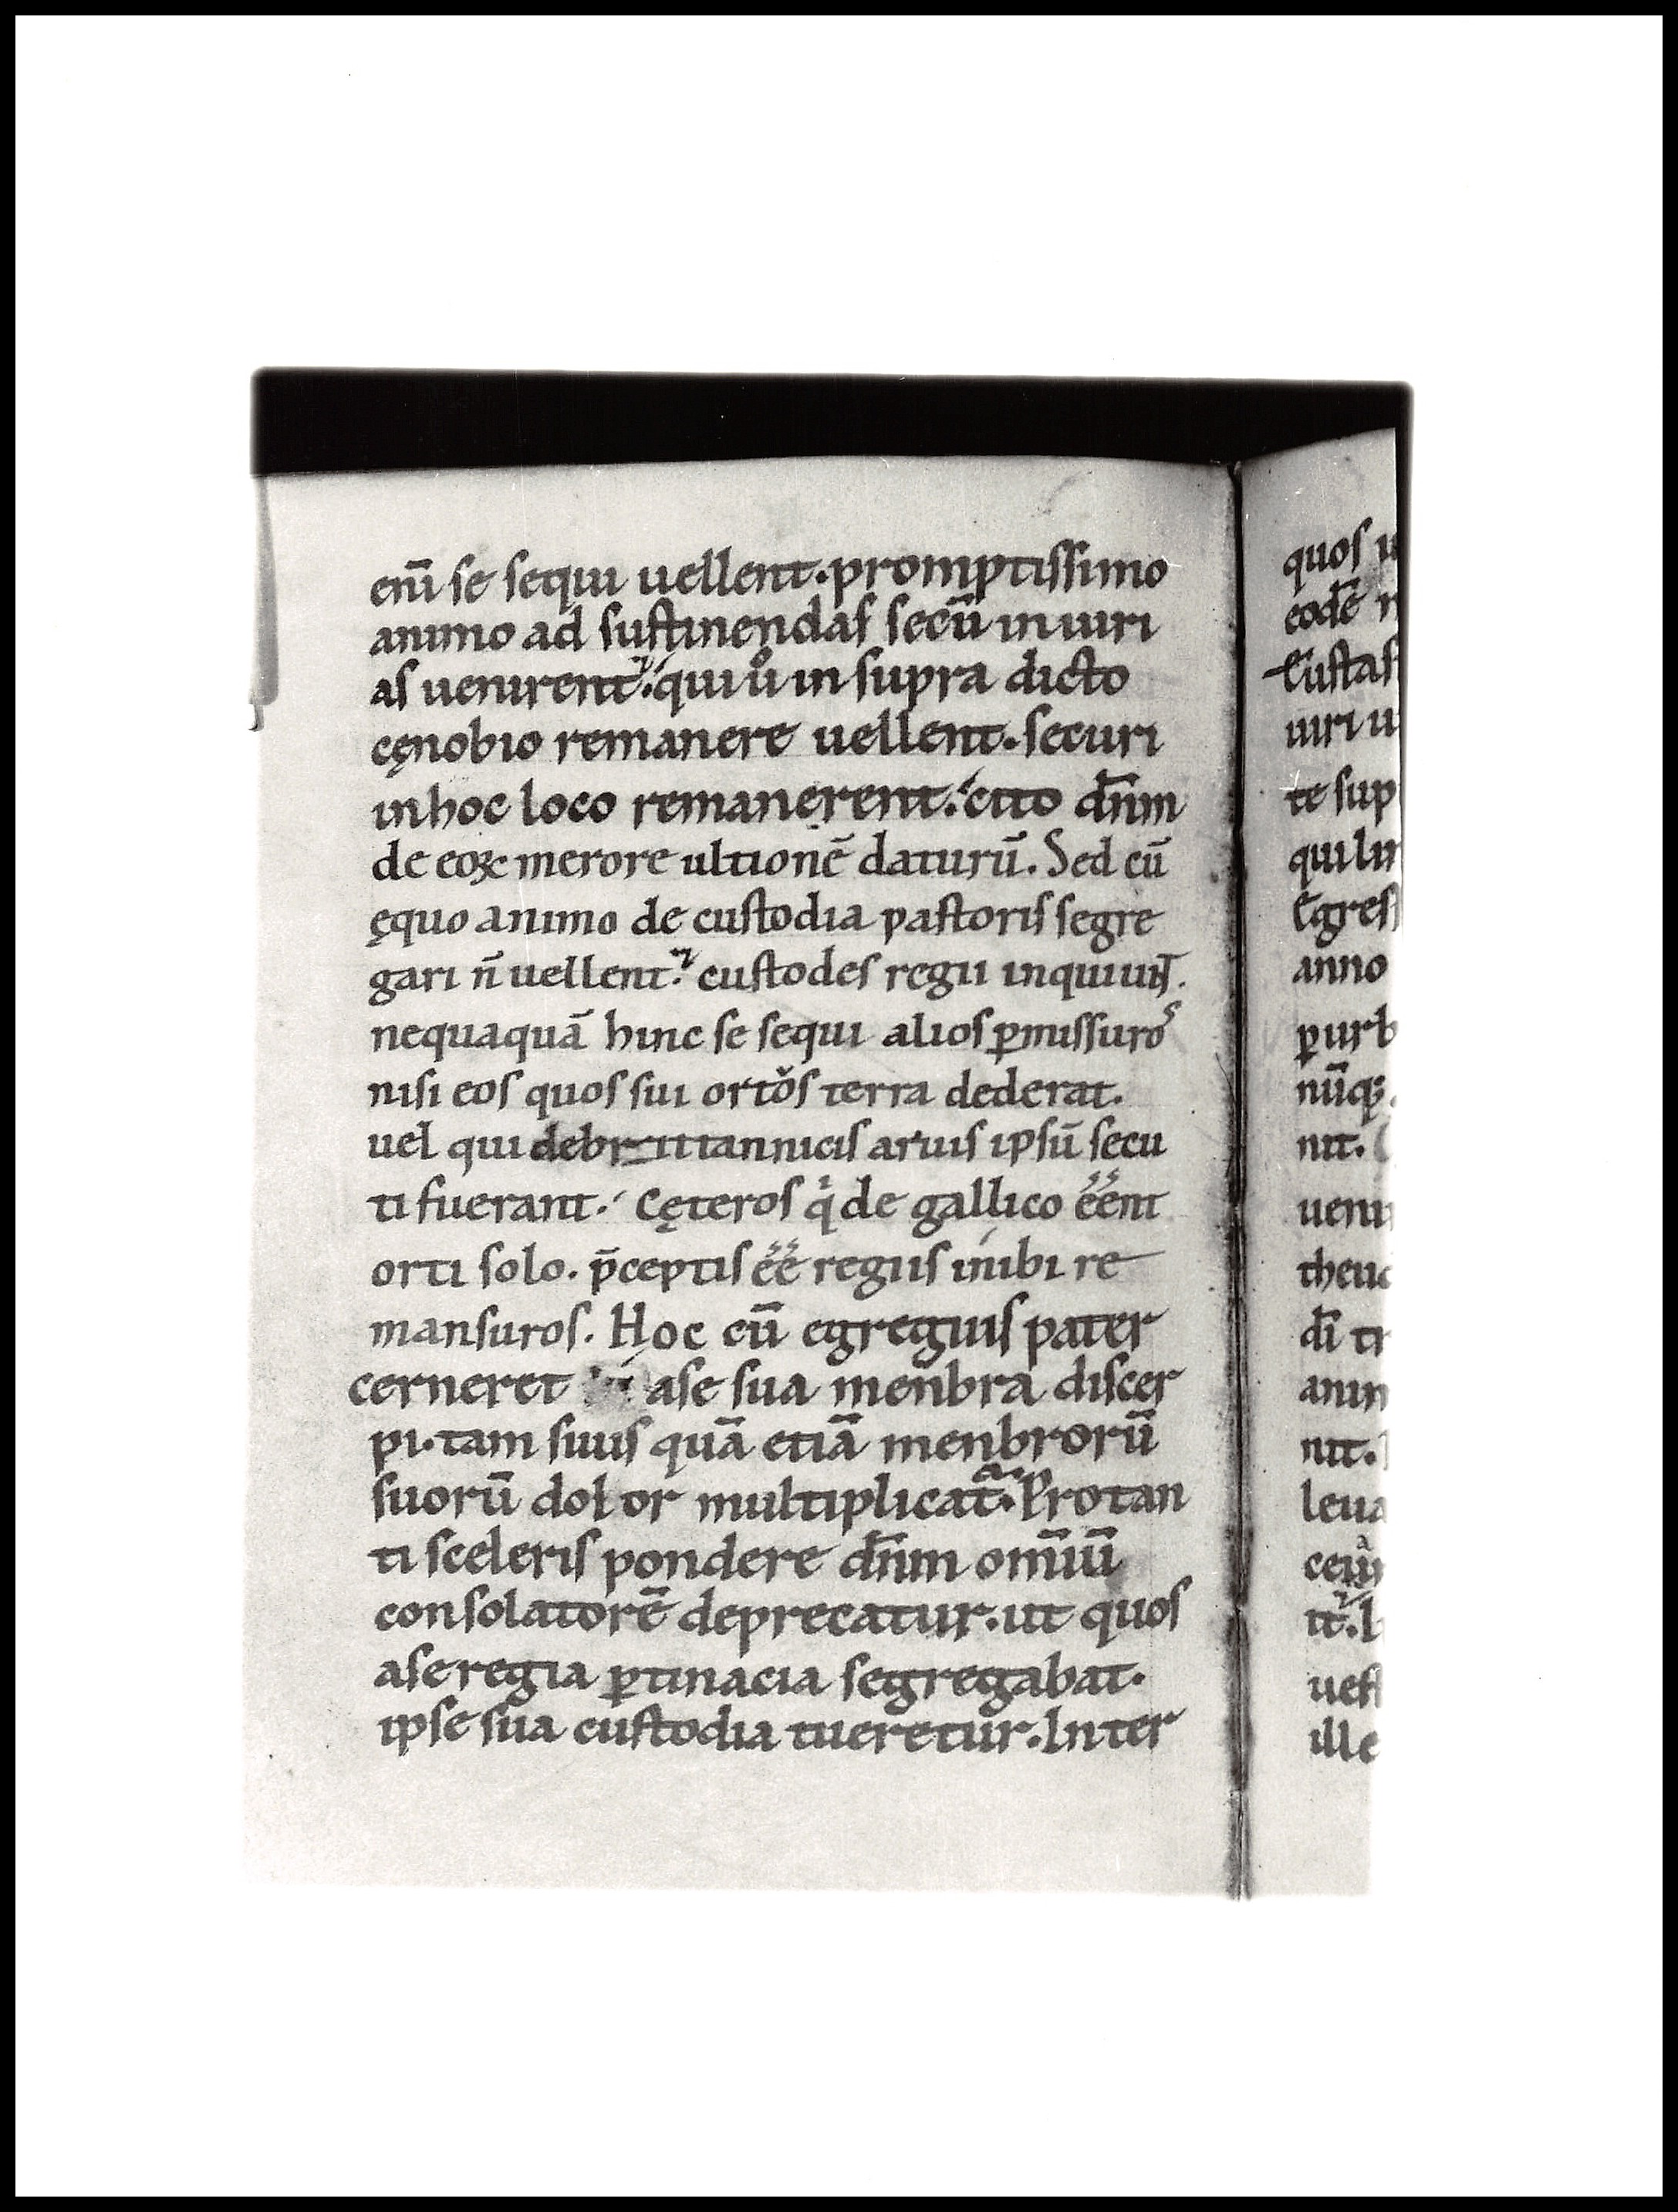 enī se sequi uellent. promptissimo
animo ad sustinendas secū in iuri
as uenirent. qui ů in supra dicto
cęnobio remanere uellent. securi
in hoc loco remanerent. cito dn̄m
de eoꝝ merore ultionē daturū. Sed cū
ęquo animo de custodia pastoris segre
gari n̄ uellent. custodes regii inquiunt.
nequaquā hinc se sequi alios ꝑmissuros
nisi eos quos sui ortos terra dederat.
uel qui de brittannicis aruis ipsū secu
ti fuerant. Cęteros qͥ de gallico eēnt
orti solo. p̄ceptis eē regiis inibi re
mansuros. Hoc cū egregius pater
cerneret a se sua menbra discer
pi. tam suis quā etiā menbrorū
suorū dolor multiplicat. Pro tan
ti sceleris pondere dn̄m omīū
consolatorē deprecatur. ut quos
a se regia ꝑtinacia segregabat.
ipse sua custodia tueretur. Inter
quos
eodē
te sup
anno
ꝑ urb
nūqꝫ
nit.
dī
nit.
ille